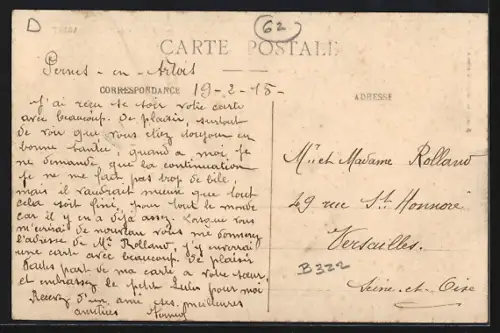 D
62
CARTE POSTALE
Pernes - en - Artois
CORRESPONDANCE
19-2-15-
ADRESSE
J'ai reçu ce soir votre carte
avec beaucoup. De plaisir, surtout
de voir que vous étiez toujours en
bonne santée, quand a moi je
ne demande que la continuation
Je ne me fait pas trop de bile,
mais il vaudrait mieux que tout
cela soit fini, pour tout le monde
car il y en a déjà assez. Lorsque vous
m'écrirez de nouveau vous me donnerez
l'adresse de Mr Rolland, j'y enverrai
une carte avec beaucoup. De plaisir
Faites part de ma carte a votre sœur,
et embrassez le petit Lulu pour moi
Recevez d'un ami ses meilleures
amitiées
Mr et Madame Rolland
49 rue St Honnoré
Versailles.
Seine-et-Oise
B322